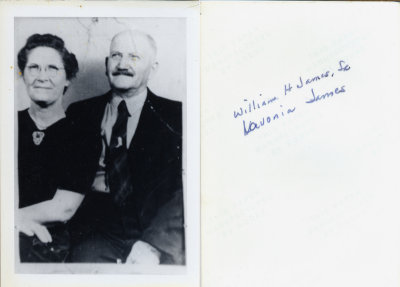 William H James, Sr
Lavonia James